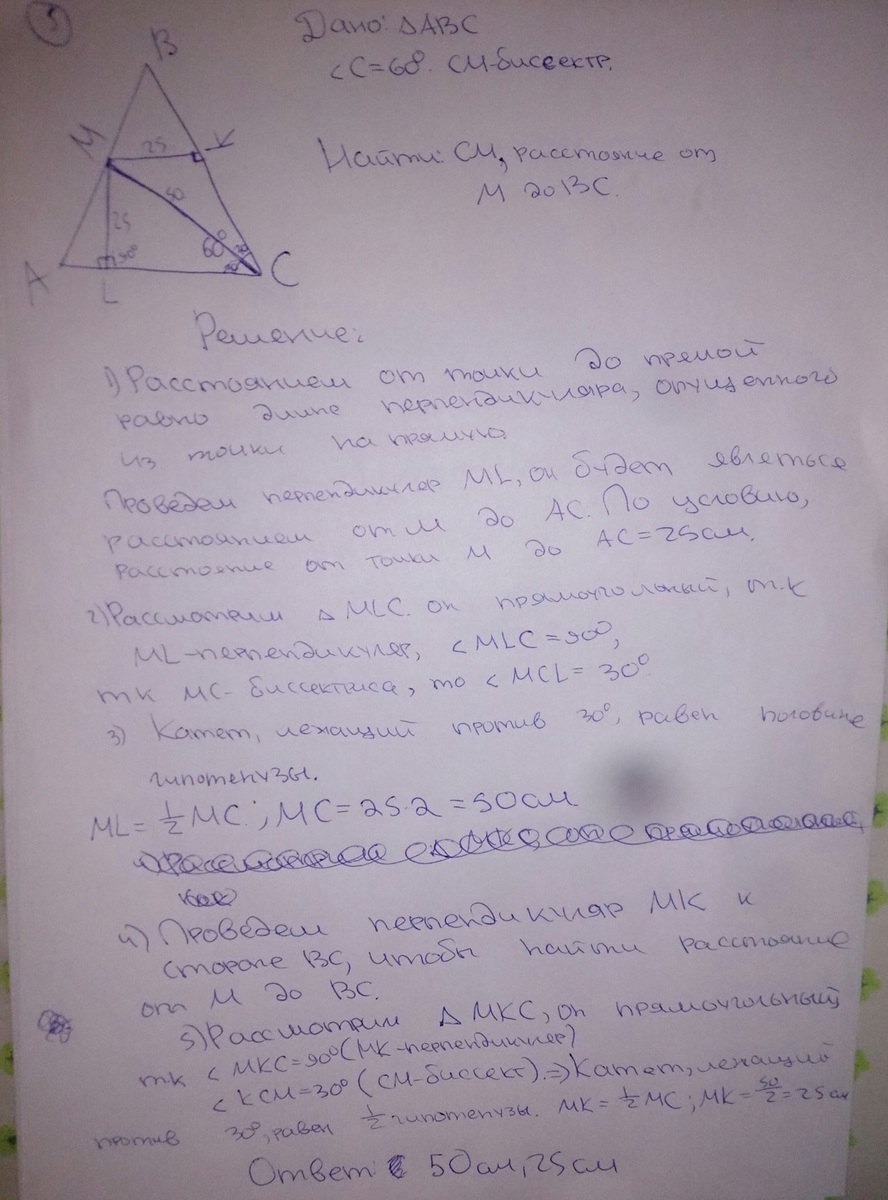 3
Дано: △ABC
∠C=60°. CM-биссектр.
Найти: CM, расстояние от
M до BC.
B
M
25
K
50
25
60°
30
30
90°
A
L
C
Решение:
1) Расстоянием от точки до прямой
равно длине перпендикуляра, опущенного
из точки на прямую.
Проведем перпендикуляр ML, он будет являеться
расстоянием от M до AC. По условию,
расстояние от точки M до AC=25см.
2) Рассмотрим △MLC. он прямоугольный, т.к
ML-перпендикуляр, ∠MLC=90°,
тк MC-биссектриса, то ∠MCL=30°.
3) Катет, лежащий против 30°, равен половине
гипотенузы.
ML=½MC; MC=25·2=50см
4) Проведем перпендикуляр MK к
стороне BC, чтобы найти расстояние
от M до BC.
5) Рассмотрим △MKC, он прямоугольный,
тк ∠MKC=90° (MK-перпендикуляр)
∠KCM=30° (CM-биссект).⇒ Катет, лежащий
против 30°, равен ½ гипотенузы. MK=½MC; MK=50/2=25см
Ответ: 50см, 25см